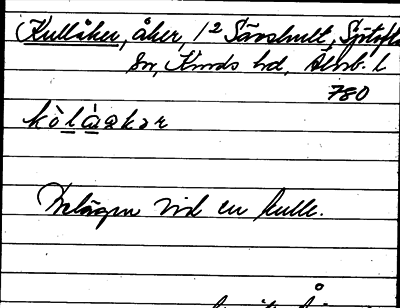 Kullåker, åker, 1² Sävshult, Sjötofta
sn, Kinds hd, Älvsb. l
780
kòlåakər
Belägen vid en kulle.